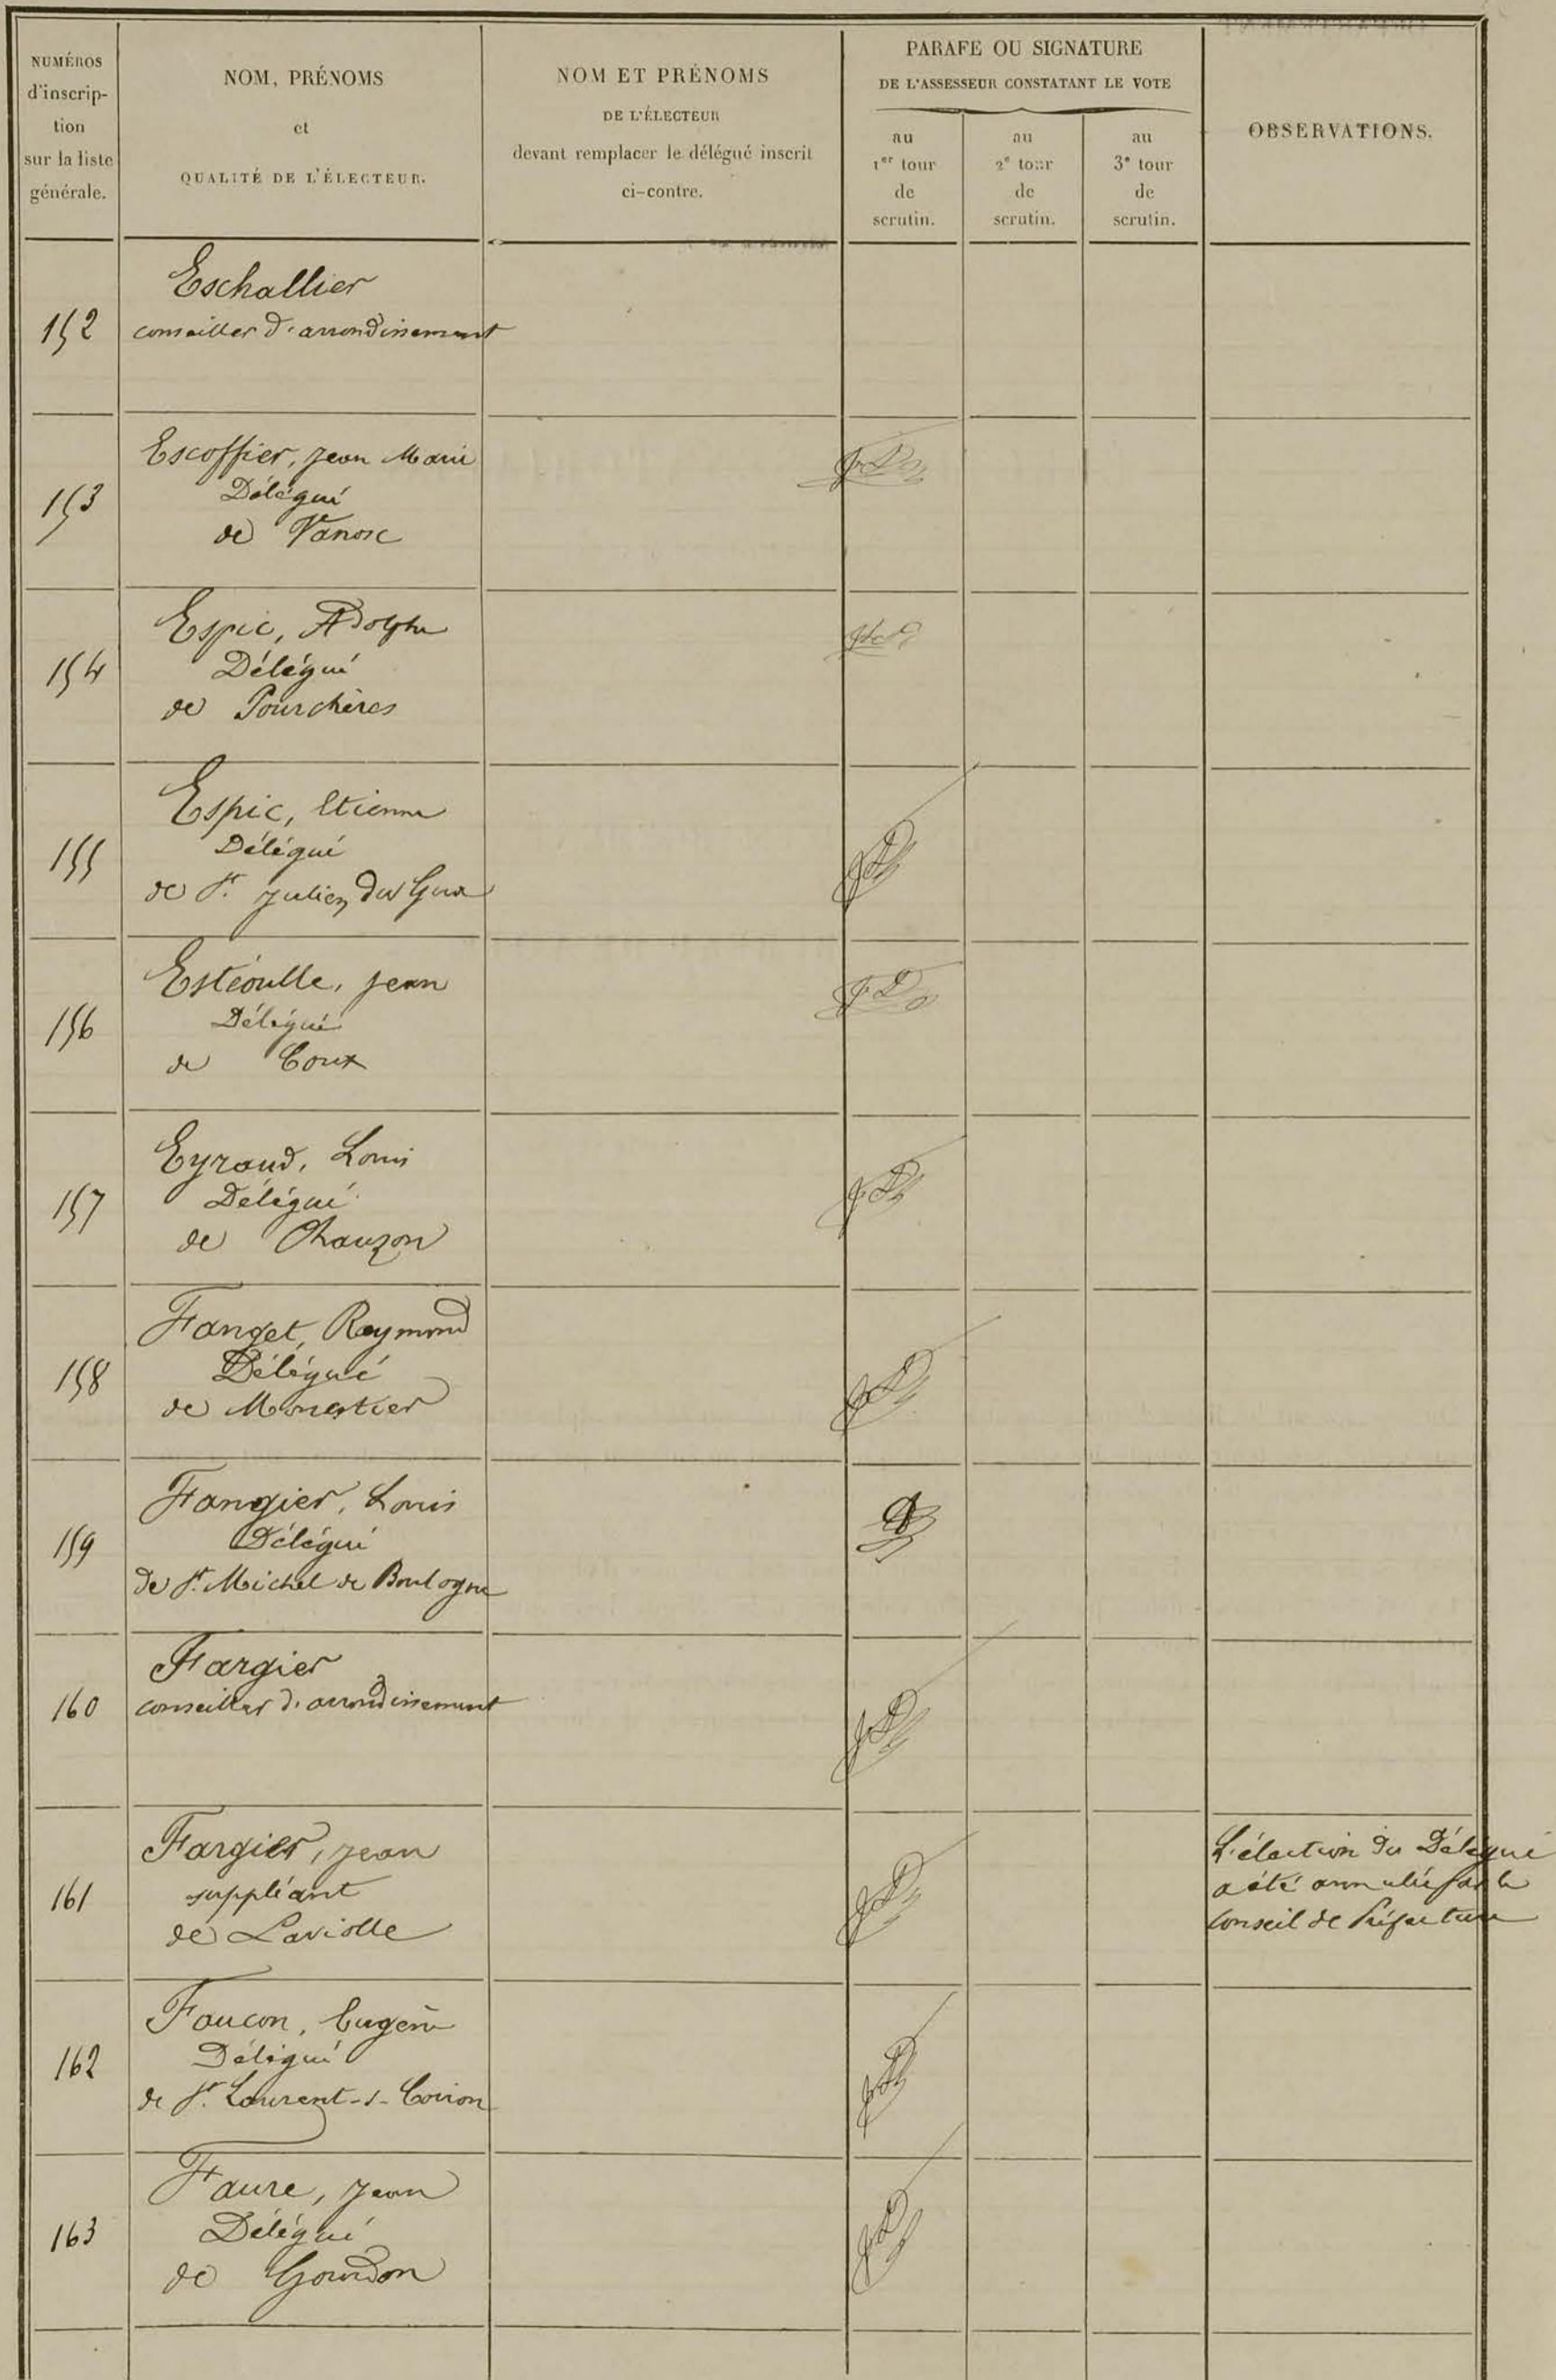 NUMÉROS
d'inscrip-
tion
sur la liste
générale.
NOM, PRÉNOMS
et
QUALITÉ DE L'ÉLECTEUR.
NOM ET PRÉNOMS
DE L'ÉLECTEUR
devant remplacer le délégué inscrit
ci-contre.
PARAFE OU SIGNATURE
DE L'ASSESSEUR CONSTATANT LE VOTE
au
1er tour
de
scrutin.
au
2e tour
de
scrutin.
au
3e tour
de
scrutin.
OBSERVATIONS.
152
Eschallier
conseiller d'arrondissement
153
Escoffier, Jean Marie
Délégué
de Vanosc
154
Espic, Adolphe
Délégué
de Pourchères
155
Espic, Etienne
Délégué
de St. Julien du Gua
156
Estéoulle, Jean
Délégué
de Coux
157
Eyraud, Louis
Délégué
de Chauzon
158
Fanget, Raymond
Délégué
de Monestier
159
Fangier, Louis
Délégué
de St. Michel de Boulogne
160
Fargier
conseiller d'arrondissement
161
Fargier, Jean
suppléant
de Laviolle
L'élection du Délégué
a été annulée par le
Conseil de Préfecture
162
Faucon, Eugène
Délégué
de St. Laurent-s-Coiron
163
Faure, Jean
Délégué
de Gourdon